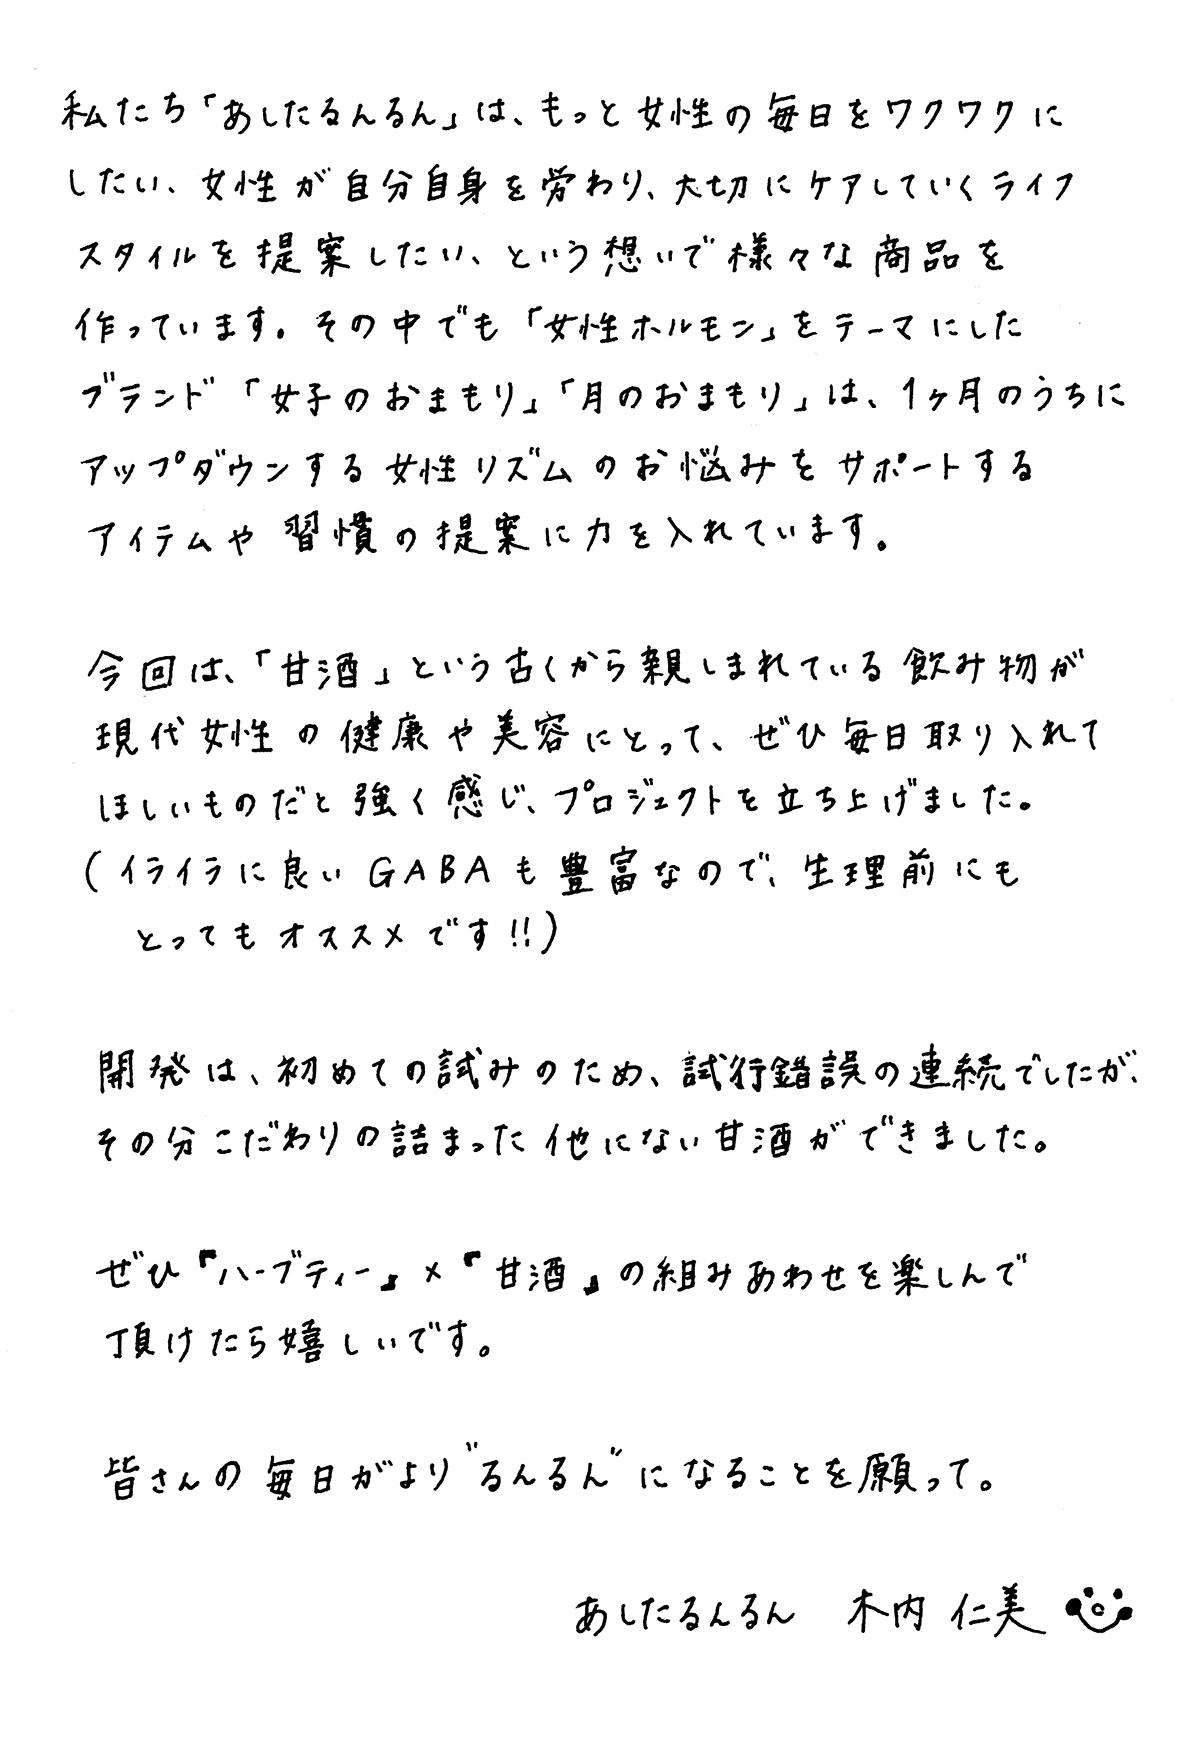 私たち「あしたるんるん」は、もっと女性の毎日をワクワクに
したい、女性が自分自身を労わり、大切にケアしていくライフ
スタイルを提案したい、という想いで様々な商品を
作っています。その中でも「女性ホルモン」をテーマにした
ブランド「女子のおまもり」「月のおまもり」は、1ヶ月のうちに
アップダウンする女性リズムのお悩みをサポートする
アイテムや習慣の提案に力を入れています。
今回は、「甘酒」という古くから親しまれている飲み物が
現代女性の健康や美容にとって、ぜひ毎日取り入れて
ほしいものだと強く感じ、プロジェクトを立ち上げました。
(イライラに良いGABAも豊富なので、生理前にも
とってもオススメです!!)
開発は、初めての試みのため、試行錯誤の連続でしたが、
その分こだわりの詰まった他にない甘酒ができました。
ぜひ『ハーブティー』×『甘酒』の組みあわせを楽しんで
頂けたら嬉しいです。
皆さんの毎日がより"るんるん"になることを願って。
あしたるんるん 木内 仁美